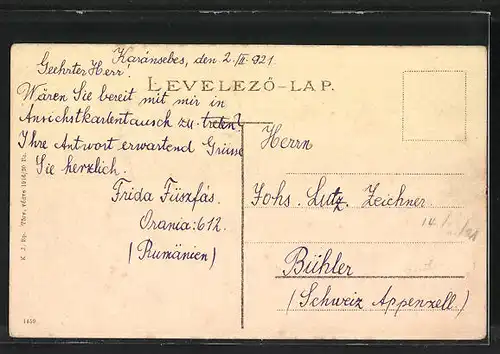 Karánsebes, den 2./III. 921.
Geehrter Herr!
LEVELEZŐ-LAP.
Wären Sie bereit mit mir in
Ansichtskartentausch zu treten?
Ihre Antwort erwartend Grüsse
Sie herzlich.
Frida Füszfás.
Orania: 612.
(Rumänien)
Herrn
Johs. Lutz. Zeichner.
Bühler
(Schweiz Appenzell.)